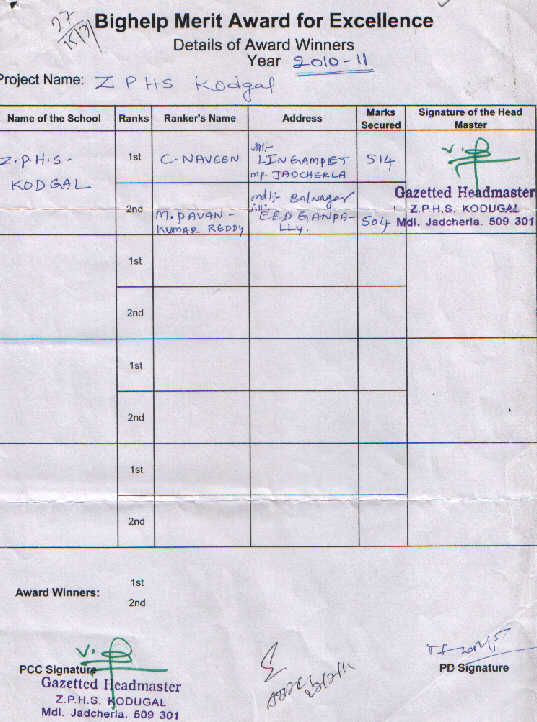 Bighelp Merit Award for Excellence
Details of Award Winners
Year 2010-11
Project Name: Z P HS Kodgal
Name of the School Ranks Ranker's Name Address Marks Secured Signature of the Head Master
Z.P.H.S- KODGAL
1st C. NAVEEN LINGAMPET 514
JADCHERLA
2nd M. PAVAN- KUMAR REDDY mdl:- Balnagar 504
Gazetted Headmaster
Z.P.H.S. KODUGAL
Mdl. Jadcherla. 509 301
1st
2nd
1st
2nd
1st
2nd
Award Winners:
1st
2nd
PCC Signature
Gazetted Headmaster
Z.P.H.S. KODUGAL
Mdl. Jadcherla. 509 301
PD Signature